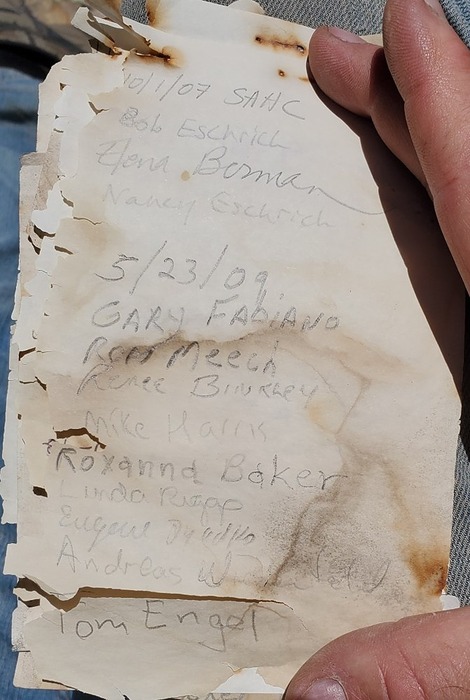 10/1/07 SAHC
Bob Eschrich
Elena Borman
Nancy Eschrich
5/23/09
GARY FABIANO
Ron Meech
Renee Binkley
Mike Harris
Roxanna Baker
Linda Rupp
Eugene
Andreas
Tom Engel